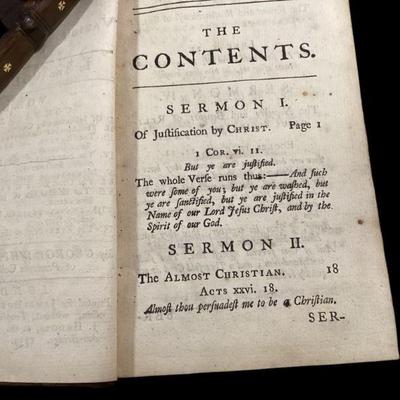 THE
CONTENTS.
SERMON I.
Of Justification by CHRIST. Page 1
1 Cor. vi. 11.
But ye are juſtified.
The whole Verſe runs thus:——And ſuch
were ſome of you; but ye are waſhed, but
ye are ſanctified, but ye are juſtified in the
Name of our Lord Jeſus Chriſt, and by the
Spirit of our God.
SERMON II.
The ALMOST CHRISTIAN. 18
ACTS xxvi. 18.
Almoſt thou perſuadeſt me to be a Chriſtian.
SER-